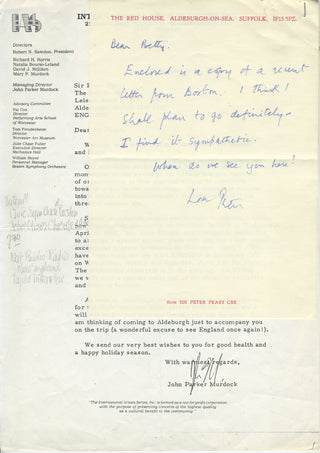 INT
THE RED HOUSE, ALDEBURGH-ON-SEA, SUFFOLK, IP15 5PZ.
Directors
Robert N. Sawdon, President
Richard H. Harris
Natalia Bourso-Leland
David J. Milliken
Mary F. Murdock
Managing Director
John Parker Murdock
Advisory Committee
Pat Cox
Director
Performing Arts School
of Worcester
Tom Freudenheim
Director
Worcester Art Museum
Julie Chase Fuller
Executive Director
Mechanics Hall
William Moyer
Personnel Manager
Boston Symphony Orchestra
Dear Pretty.
Enclosed is a copy of a recent
letter from Boston. I think I
shall plan to go definitely –
I find it sympathetic.
When do we see you here?
Love Peter
from SIR PETER PEARS CBE
Sir
The
Leis
Alde
ENG
Dear
and
mon
of
towa
into
thre
now
Apri
to a
exce
have
on W
The
and
A
for
will
am thinking of coming to Aldeburgh just to accompany you
on the trip (a wonderful excuse to see England once again!).
We send our very best wishes to you for good health and
a happy holiday season.
With warmest regards,
John Parker Murdock
7:30
Nat Public Radio
New England
"The International Artists Series, Inc. is formed as a non-for-profit corporation
with the purpose of presenting concerts of the highest quality
as a cultural benefit to the community."